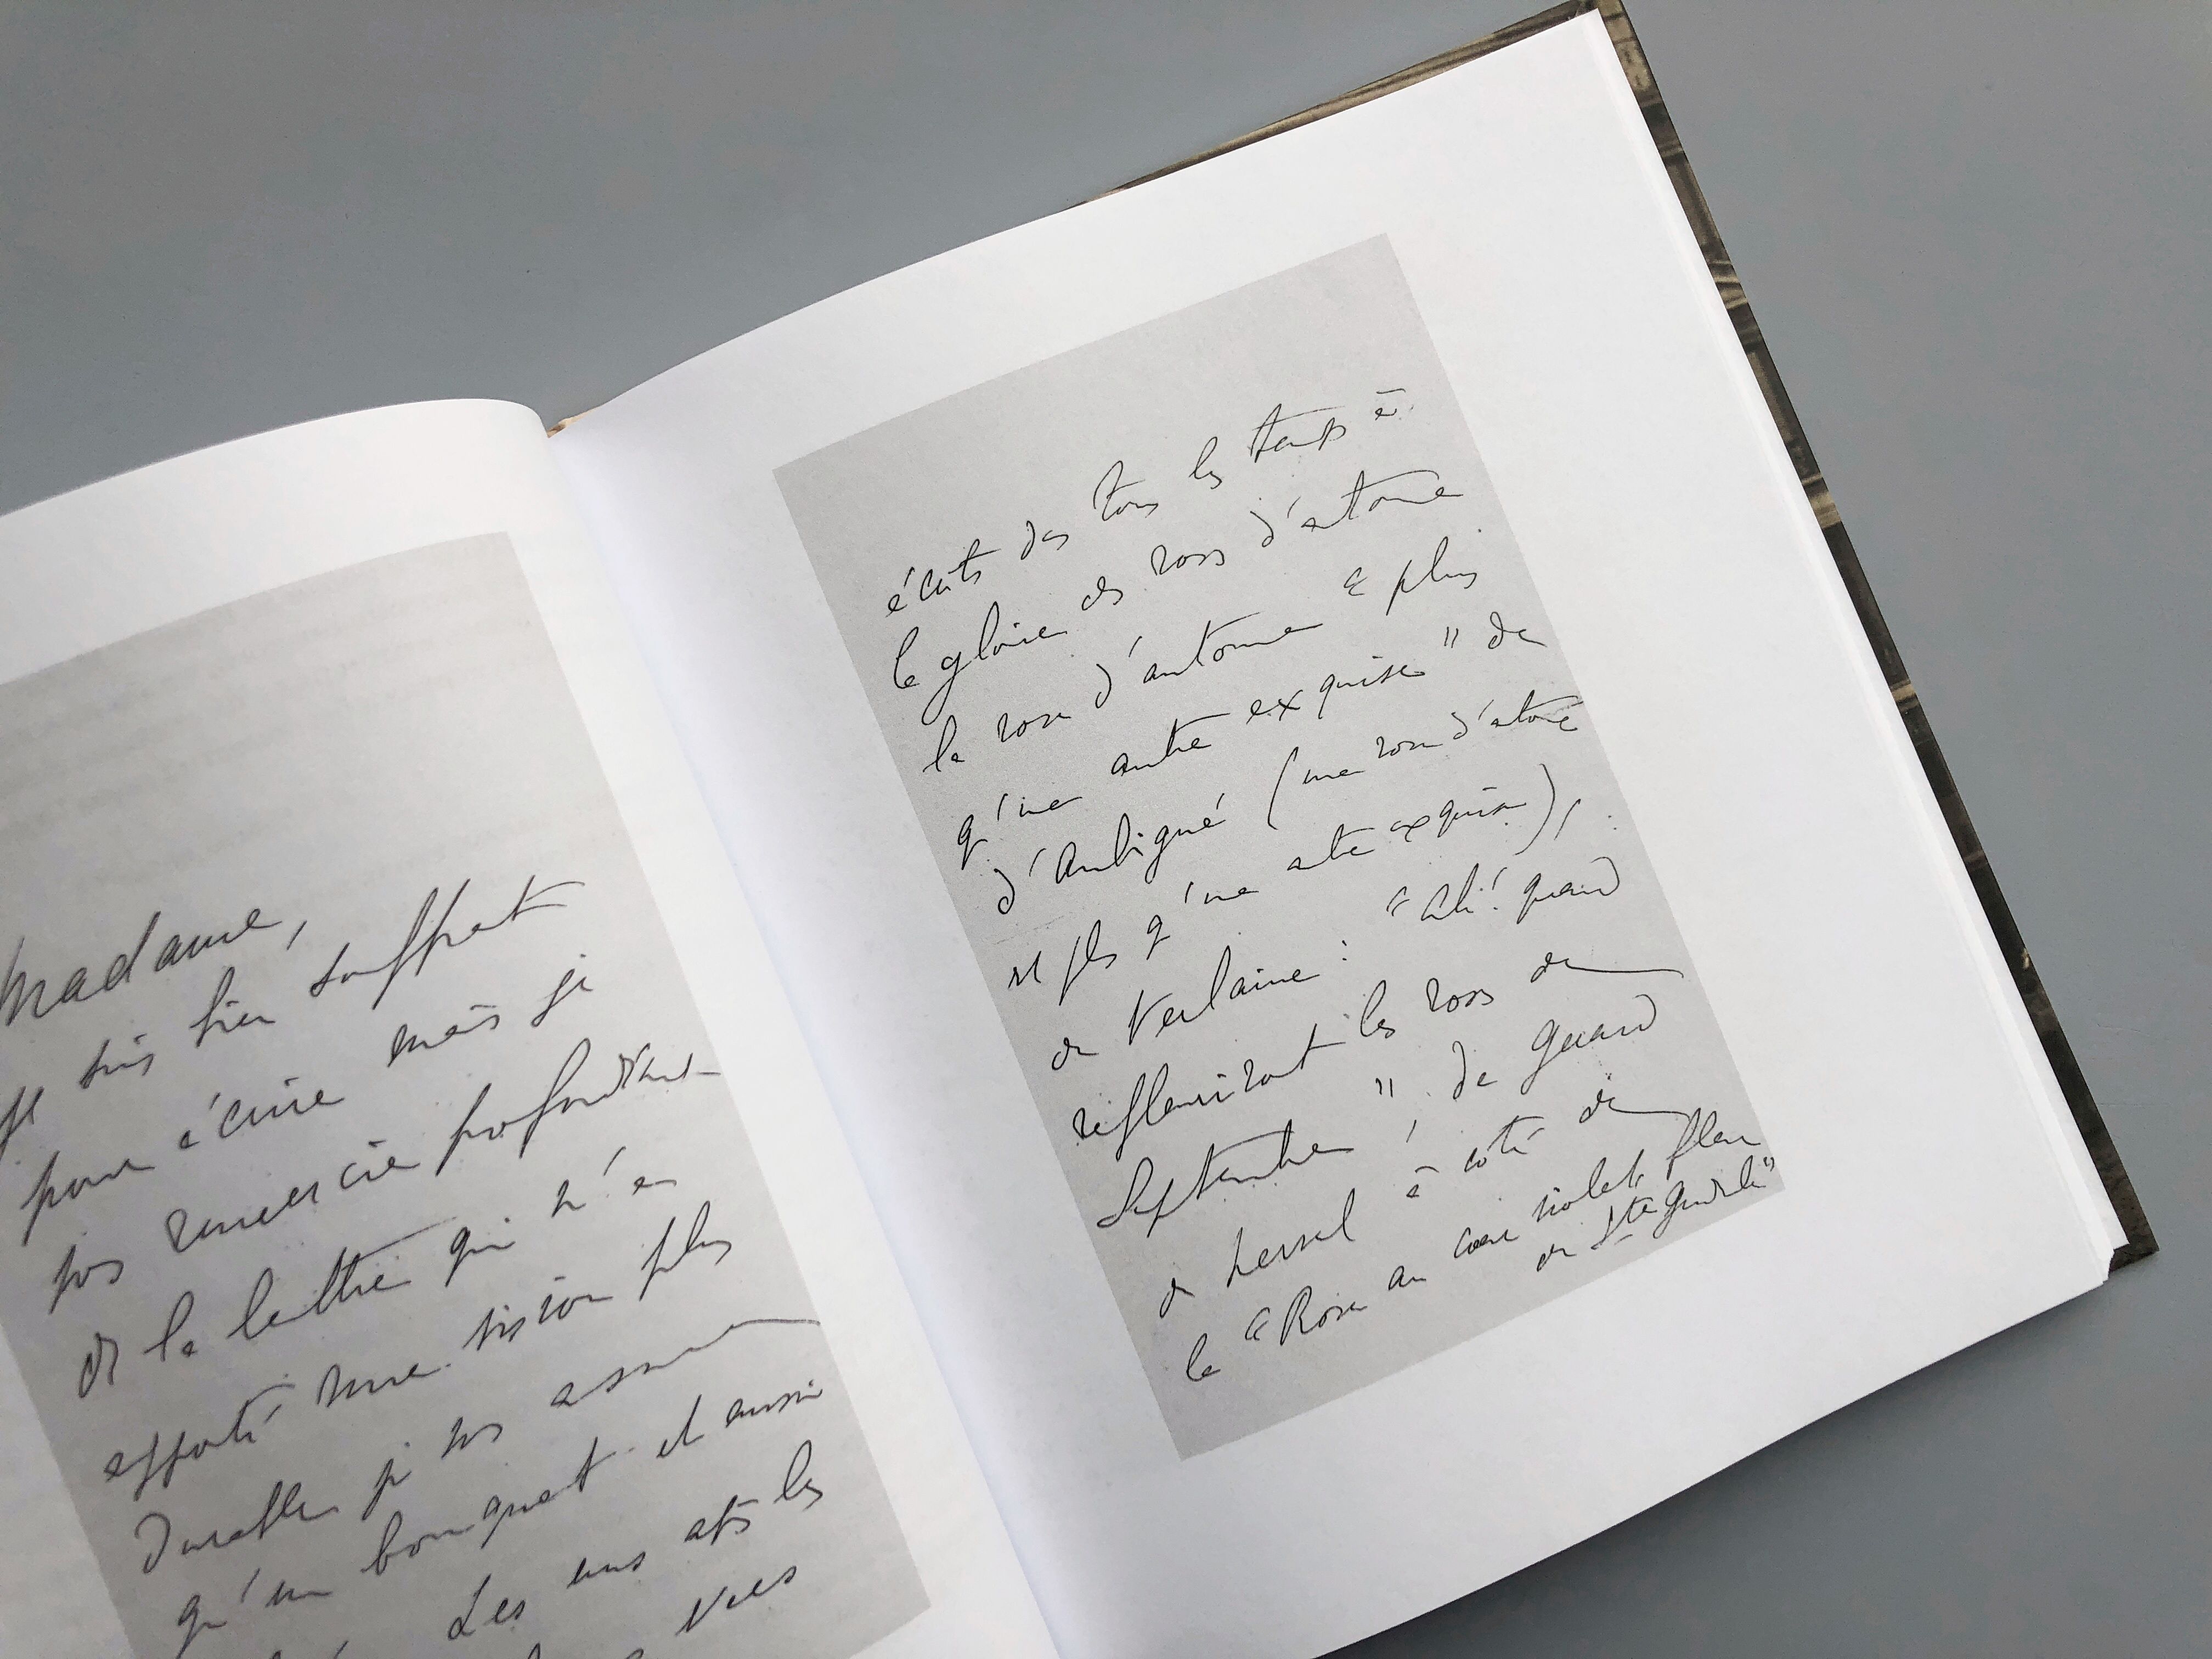 Madame,
Je suis bien souffrant
pour écrire mais je
vous remercie profondément
de la lettre qui m'a
apporté une vision plus
durable je vous assure
qu'un bouquet et aussi
Les uns après les
vues
écrits dans tous les temps à
la gloire des roses d'automne
la rose d'automne " plus
qu'une autre exquise " de
d'Aubigné (une rose d'automne
est plus qu'une autre exquise),
de Verlaine : " Ah! quand
refleuriront les roses de
Septembre " , de Gérard
de Nerval à côté de
la " Rose au cœur violet, fleur
de Ste Gudule "